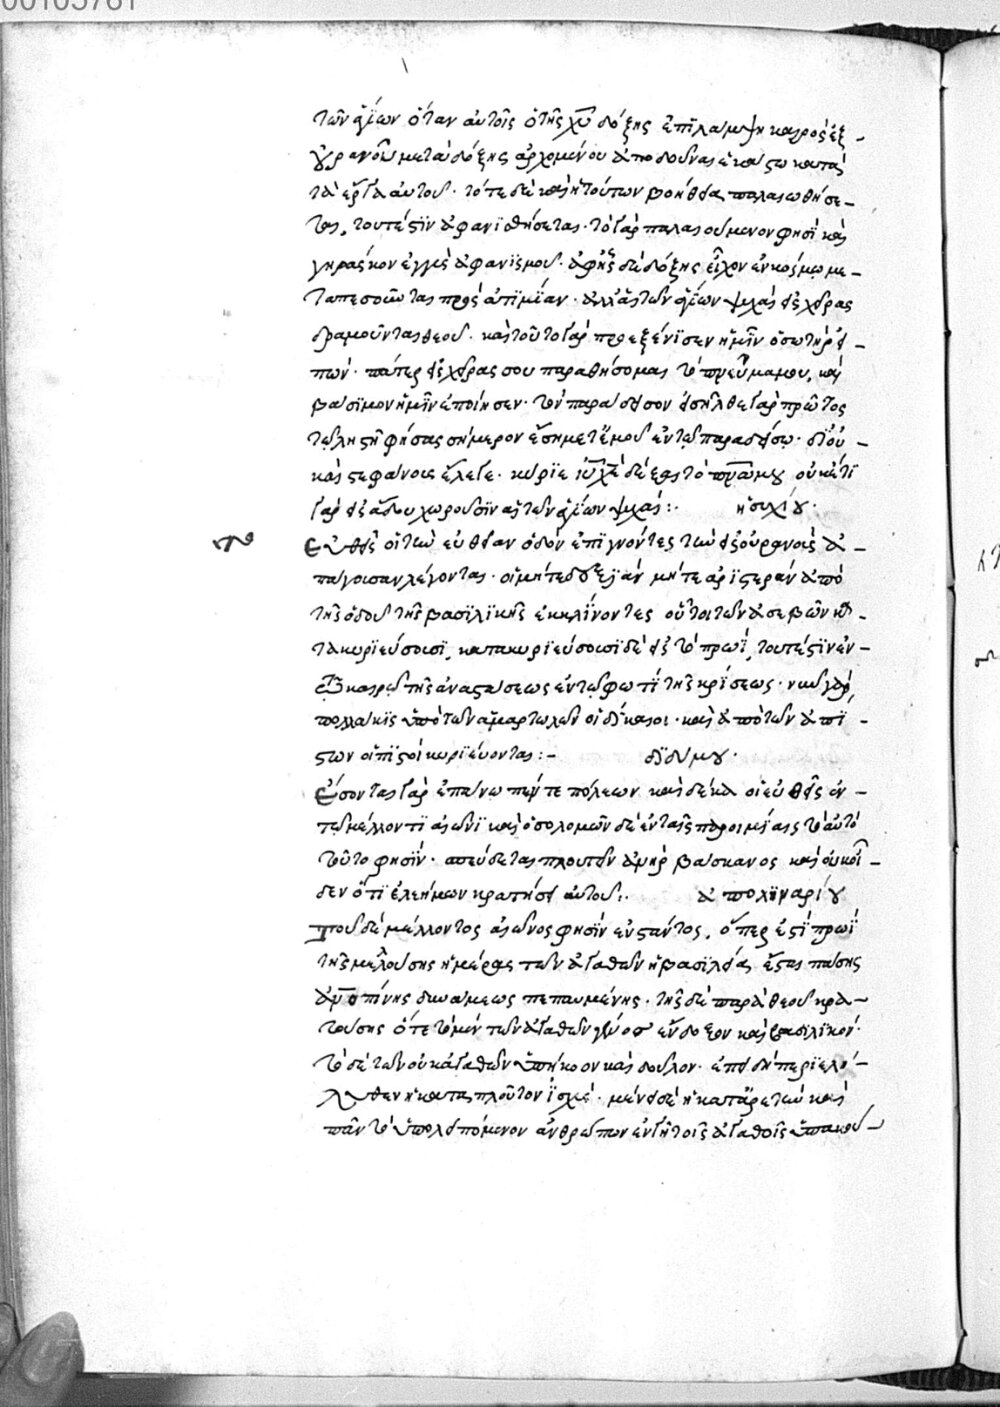 00105781
τῶν ἁγίων ὅταν αὐτοῖς ὁ τῆς χυ δόξης ἐπιλάμψη καιρὸς ἐξ
οὐρανοῦ μετὰ δόξης ἀρχομένου ἀποδοῦναι ἑκάστω κατὰ
τὰ ἔργα αὐτοῦ· τότε δὲ καὶ ἡ τούτων βοήθεια παλαιωθήσε-
ται, τουτέστιν ἀφανισθήσεται· τὸ γὰρ παλαιούμενον φησὶ καὶ
γηράσκον ἐγγὺς ἀφανισμοῦ· ἀφ' ἧς δὲ δόξης εἶχον ἐν κόσμω με-
ταπεσοῦνται πρὸς ἀτιμίαν· ἀλλὰ τῶν ἁγίων ψυχὰς εἰς χεῖρας
δραμοῦνται θεοῦ· καὶ τοῦτο γὰρ προεξένισεν ἡμῖν ὁ σωτὴρ εἰ-
πών· πάτερ εἰς χεῖρας σου παραθήσομαι τὸ πνεῦμα μου, καὶ
βάσιμον ἡμῖν ἐποίησεν· τὸν παράδεισον εἰσῆλθε γὰρ πρῶτος
τῶ ληστῆ φήσας σήμερον ἔση μετ' ἐμοῦ ἐν τῶ παραδείσω· διὸ
καὶ στέφανος ἔλεγε· κύριε ιυ χε δέξαι τὸ πνα μου οὐκέτι
γὰρ εἰς ἅδου χωροῦσιν αἱ τῶν ἁγίων ψυχαί:· ἡσυχίου·
Εὐθεῖς οἱ τὴν εὐθεῖαν ὁδὸν ἐπιγνόντες τὴν εἰς οὐρανοὺς ἀ-
πάγουσαν λέγονται· οἱ μήτε δεξιὰν μήτε ἀριστερὰν ἀπὸ
τῆς ὁδοῦ τῆς βασιλικῆς ἐκκλίνοντες οὗτοι τῶν ἀσεβῶν κα-
τακυριεύσουσι, κατακυριεύσουσι δὲ εἰς τὸ πρωῒ, τουτέστιν ἐν
τῶ καιρῶ τῆς ἀναστάσεως ἐν τῶ φωτὶ τῆς κρίσεως· νῦν γὰρ
πολλάκις ὑπὸ τῶν ἁμαρτωλῶν οἱ δίκαιοι· καὶ ἀπὸ τῶν ἀπί-
στων οἱ πιστοὶ κυριεύονται:- διδύμου·
Ἔσονται γὰρ ἐπάνω πέντε πόλεων καὶ δέκα οἱ εὐθεῖς ἐν
τῶ μέλλοντι αἰῶνι καὶ ὁ σολομῶν δὲ ἐν ταῖς παροιμίαις τὸ αὐτὸ
τοῦτο φησίν· σπεύδεται πλουτεῖν ἀνὴρ βάσκανος καὶ οὐκ οἶ-
δεν ὅτι ἐλεήμων κρατήσει αὐτοῦ:. ἀπολιναρίου
Τοῦ δὲ μέλλοντος αἰῶνος φησὶν ἐνστάντος, ὅπερ ἐστὶ πρωῒ
τῆς μελλούσης ἡμέρας τῶν ἀγαθῶν ἡ βασιλεία ἔσται πάσης
ἀνθρωπίνης δυνάμεως πεπαυμένης· τῆς δὲ παρὰ θεοῦ κρα-
τούσης ὅτε τὸ μὲν τῶν ἀγαθῶν γένος ἔνδοξον καὶ βασιλικόν·
τὸ δὲ τῶν οὐκ ἀγαθῶν ὑπήκοον καὶ δοῦλον· ἐπειδὴ περιελή-
λυθεν ἡ κατὰ πλοῦτον ἰσχύς· μένει δὲ ἡ κατ' ἀρετὴν καὶ
πᾶν τὸ ὑπολειπόμενον ἀνθρώπων ἐν γῆ τοῖς ἀγαθοῖς ὑπακού-